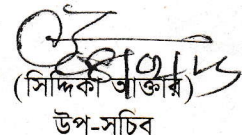 (সিদ্দিকা আক্তার)
উপ-সচিব